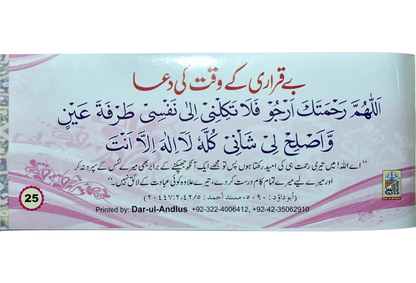 بے قراری کے وقت کی دعا
اَللّٰهُمَّ رَحْمَتَكَ اَرْجُوْ فَلَا تَكِلْنِیْ اِلٰی نَفْسِیْ طَرْفَةَ عَیْنٍ
وَّاَصْلِحْ لِیْ شَاْنِیْ كُلَّهٗ لَا اِلٰهَ اِلَّا اَنْتَ
"اے اللہ! میں تیری رحمت ہی کی امید رکھتا ہوں پس تو مجھے ایک آنکھ جھپکنے کے برابر بھی میرے نفس کے سپرد نہ کر
اور میرے لیے میرے تمام کام درست کر دے، تیرے علاوہ کوئی عبادت کے لائق نہیں۔"
(ابوداؤد: ۵۰۹۰، مسند احمد: ۲۰۴۴۷:۲،۴۲/۵)
25
Printed by: Dar-ul-Andlus +92-322-4006412, +92-42-35062910